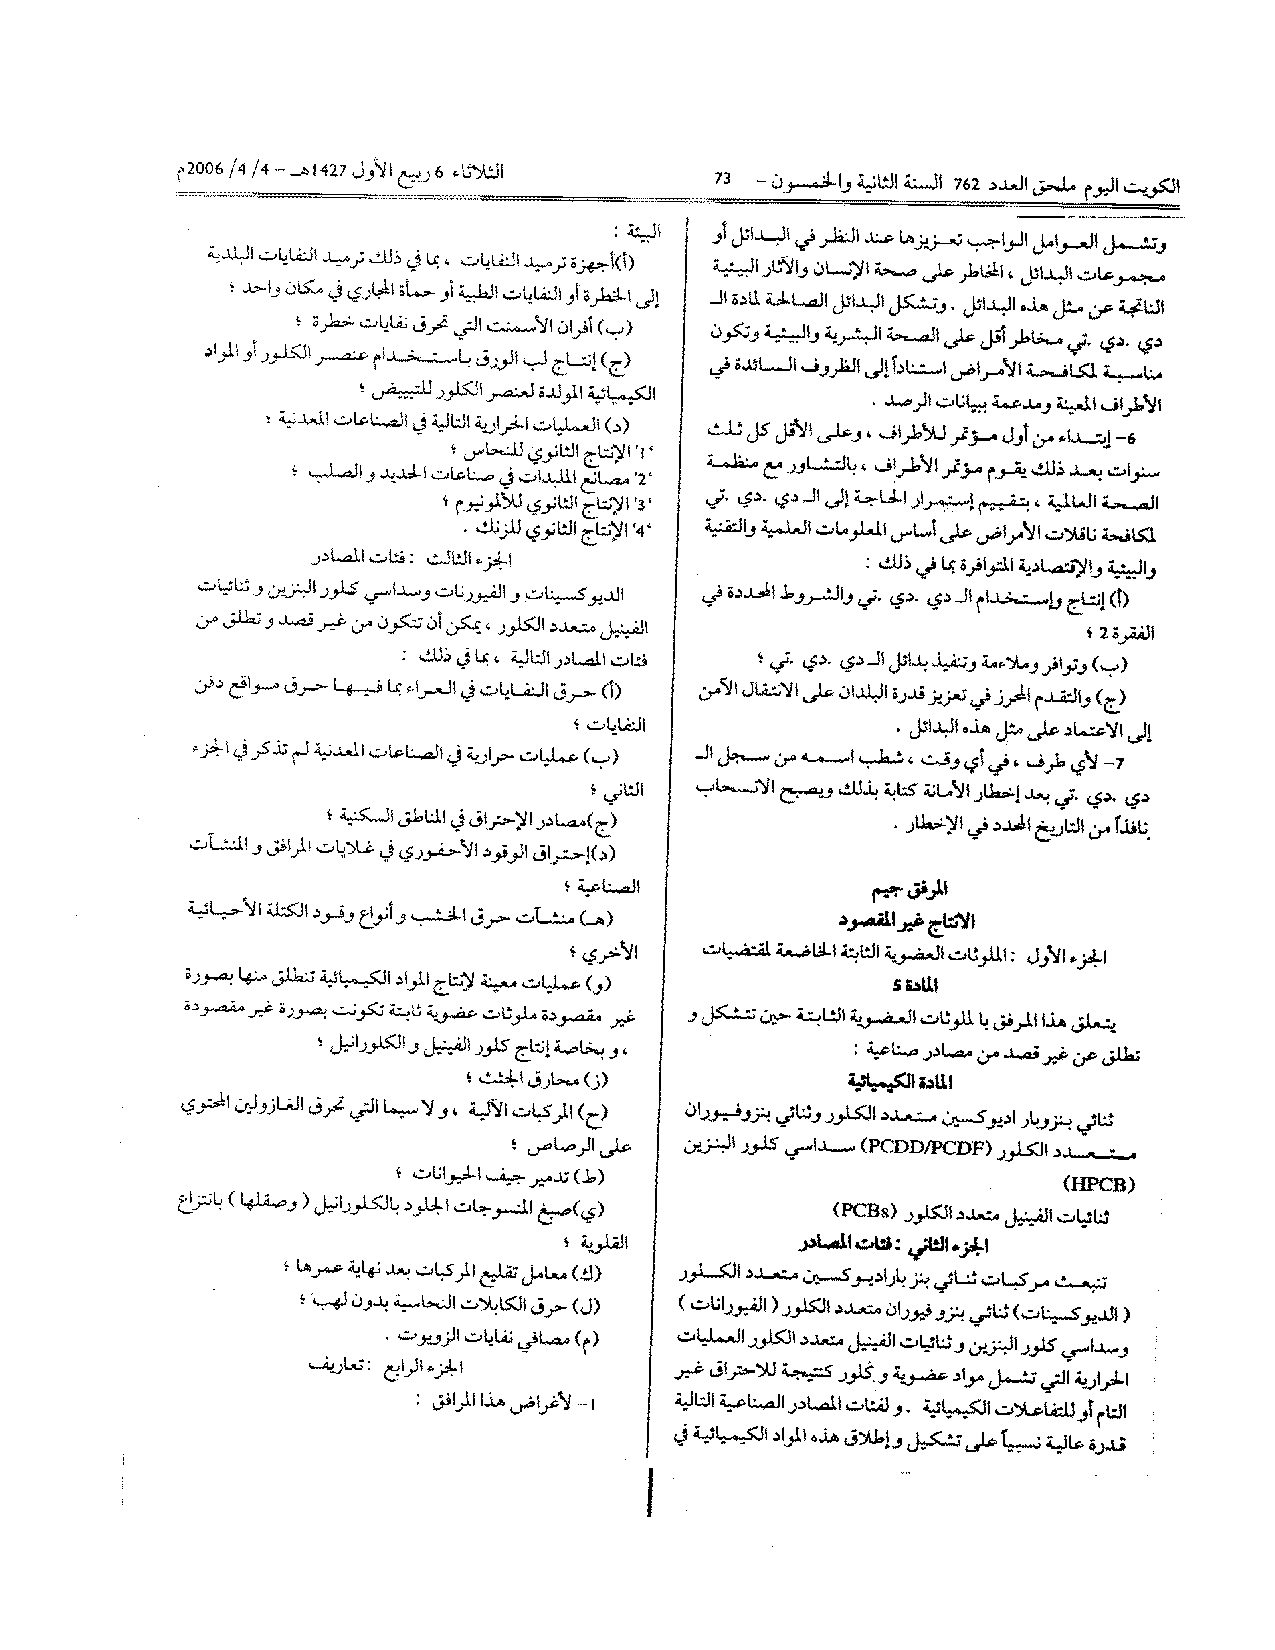 الكويت اليوم ملحق العدد 762 السنة الثانية والخمسون - 73
الثلاثاء 6 ربيع الأول 1427هـ - 4/ 4/ 2006م
وتشمل العوامل الواجب تعزيزها عند النظر في البدائل أو
مجموعات البدائل ، المخاطر على صحة الإنسان والآثار البيئية
الناتجة عن مثل هذه البدائل . وتشكل البدائل الصالحة لمادة الـ
دي .دي .تي مخاطر أقل على الصحة البشرية والبيئية وتكون
مناسبة لمكافحة الأمراض استناداً إلى الظروف السائدة في
الأطراف المعينة ومدعمة ببيانات الرصد .
6- إبتداء من أول مؤتمر للأطراف ، وعلى الأقل كل ثلث
سنوات بعد ذلك يقوم مؤتمر الأطراف ، بالتشاور مع منظمة
الصحة العالمية ، بتقييم إستمرار الحاجة إلى الـ دي .دي .تي
لمكافحة ناقلات الأمراض على أساس المعلومات العلمية والتقنية
والبيئية والإقتصادية المتوافرة بما في ذلك :
(أ) إنتاج وإستخدام الـ دي .دي .تي والشروط المحددة في
الفقرة 2 ؛
(ب) وتوافر وملاءمة وتنفيذ بدائل الـ دي .دي .تي ؛
(ج) والتقدم المحرز في تعزيز قدرة البلدان على الانتقال الآمن
إلى الاعتماد على مثل هذه البدائل .
7- لأي طرف ، في أي وقت ، شطب اسمه من سجل الـ
دي .دي .تي بعد إخطار الأمانة كتابة بذلك ويصبح الانسحاب
نافذاً من التاريخ المحدد في الإخطار .
المرفق جيم
الانتاج غير المقصود
الجزء الأول : الملوثات العضوية الثابتة الخاضعة لمقتضيات
المادة 5
يتعلق هذا المرفق با لملوثات العضوية الثابتة حين تتشكل و
تطلق عن غير قصد من مصادر صناعية :
المادة الكيميائية
ثنائي بنزوبار اديوكسين متعدد الكلور وثنائي بنزوفيوران
متعدد الكلور (PCDD/PCDF) سداسي كلور البنزين
(HPCB)
ثنائيات الفينيل متعدد الكلور (PCBs)
الجزء الثاني : فئات المصادر
تنبعث مركبات ثنائي بنز باراديوكسين متعدد الكلور
( الديوكسينات) ثنائي بنزو فيوران متعدد الكلور ( الفيورانات )
وسداسي كلور البنزين و ثنائيات الفينيل متعدد الكلور العمليات
الحرارية التي تشمل مواد عضوية و كلور كنتيجة للاحتراق غير
التام أو للتفاعلات الكيميائية . و لفئات المصادر الصناعية التالية
قدرة عالية نسبياً على تشكيل و إطلاق هذه المواد الكيميائية في
البيئة :
(أ)أجهزة ترميد النفايات ، بما في ذلك ترميد النفايات البلدية
إلى الخطرة أو النفايات الطبية أو حمأة المجاري في مكان واحد ؛
(ب) أفران الأسمنت التي تحرق نفايات خطرة ؛
(ج) إنتاج لب الورق باستخدام عنصر الكلور أو المواد
الكيميائية المولدة لعنصر الكلور للتبييض ؛
(د) العمليات الحرارية التالية في الصناعات المعدنية :
'1' الإنتاج الثانوي للنحاس ؛
'2' مصانع الملبدات في صناعات الحديد و الصلب ؛
'3' الإنتاج الثانوي للألمونيوم ؛
'4' الإنتاج الثانوي للزنك .
الجزء الثالث : فئات المصادر
الديوكسينات و الفيورنات وسداسي كلور البنزين و ثنائيات
الفينيل متعدد الكلور ، يمكن أن تتكون من غير قصد و تطلق من
فئات المصادر التالية ، بما في ذلك :
(أ) حرق النفايات في العراء بما فيها حرق مواقع دفن
النفايات ؛
(ب) عمليات حرارية في الصناعات المعدنية لم تذكر في الجزء
الثاني ؛
(ج)مصادر الإحتراق في المناطق السكنية ؛
(د)إحتراق الوقود الأحفوري في غلايات المرافق و المنشآت
الصناعية ؛
(هـ) منشآت حرق الخشب و أنواع وقود الكتلة الأحيائية
الأخري ؛
(و) عمليات معينة لإنتاج المواد الكيميائية تنطلق منها بصورة
غير مقصودة ملوثات عضوية ثابتة تكونت بصورة غير مقصودة
، و بخاصة إنتاج كلور الفينيل و الكلورانيل ؛
(ز) محارق الجثث ؛
(ح) المركبات الآلية ، و لا سيما التي تحرق الغازولين المحتوي
على الرصاص ؛
(ط) تدمير جيف الحيوانات ؛
(ي)صبغ المنسوجات الجلود بالكلورانيل ( وصقلها ) بانتزاع
القلوية ؛
(ك) معامل تقليع المركبات بعد نهاية عمرها ؛
(ل) حرق الكابلات النحاسية بدون لهب ؛
(م) مصافي نفايات الزويوت .
الجزء الرابع : تعاريف
1- لأغراض هذا المرافق :